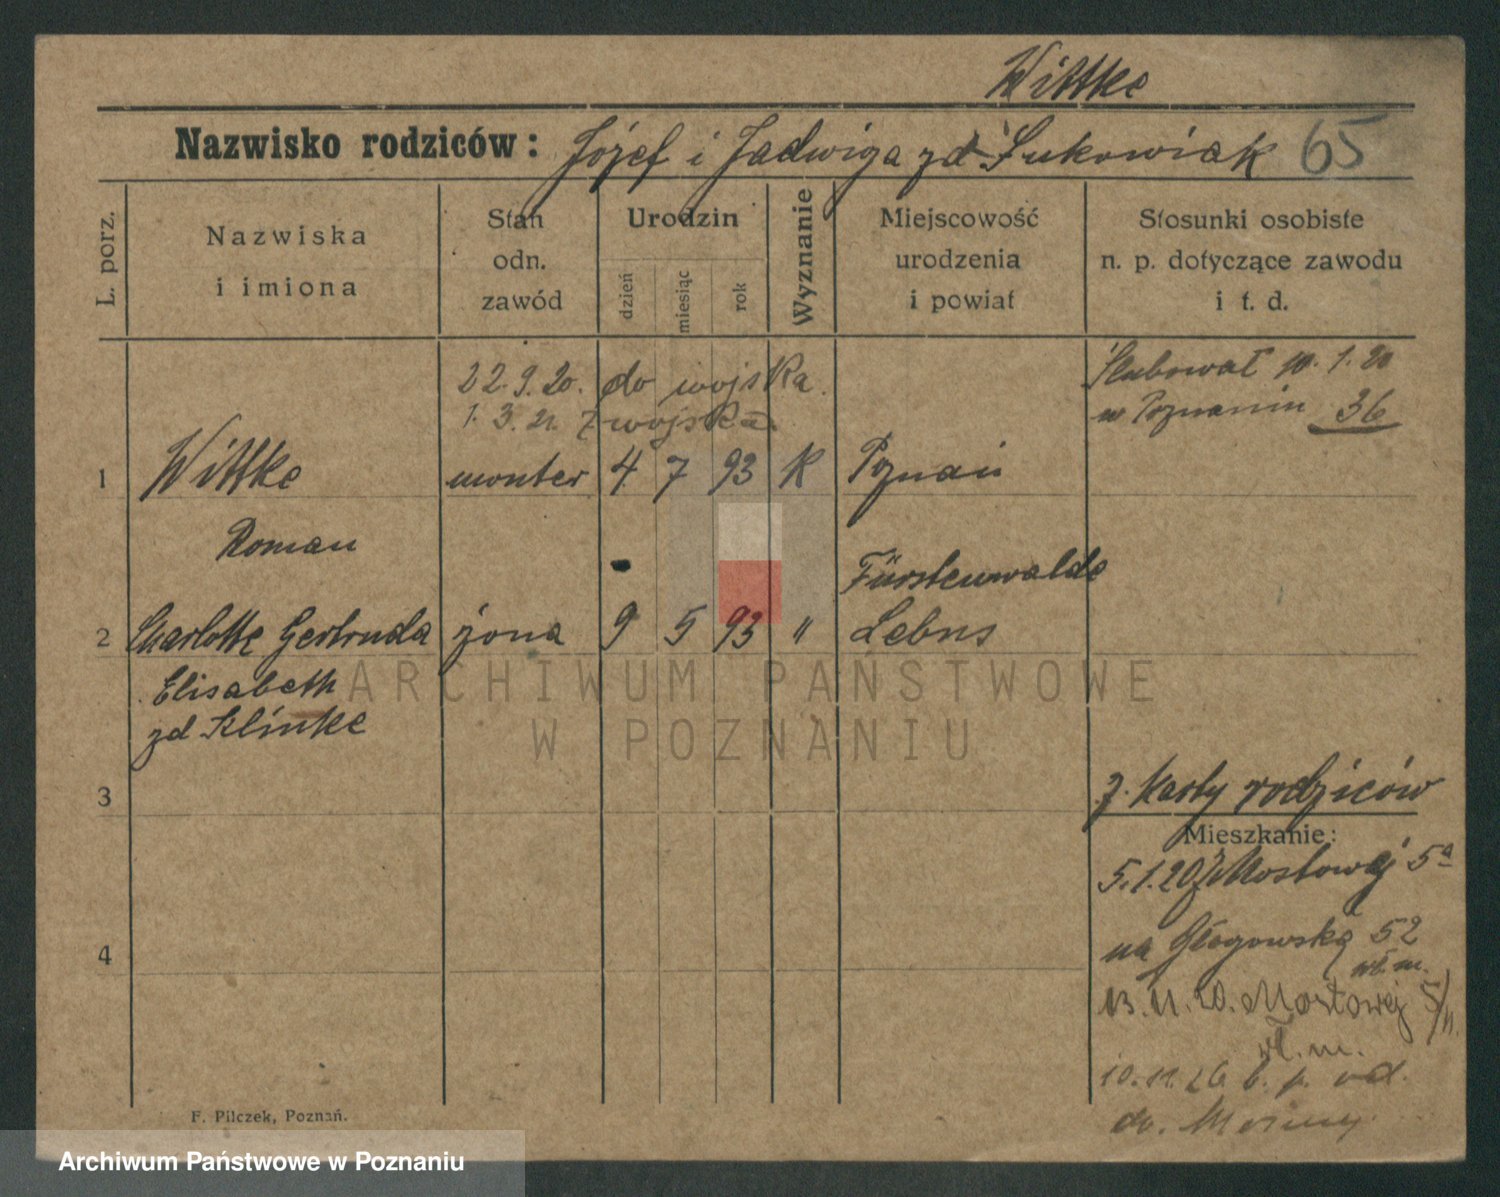 Wittke
Nazwisko rodziców: Józef i Jadwiga zd Sukowiak 65
L. porz.
Nazwiska i imiona
Stan odn. zawód
Urodzin
dzień miesiąc rok
Wyznanie
Miejscowość urodzenia i powiat
Stosunki osobiste n. p. dotyczące zawodu i t. d.
22.9.20. do wojska.
1.3.21. z wojska.
Ślubował 10.1.20
w Poznaniu 36
1 Wittke monter 4 7 93 K Poznań
Roman
Fürstenwalde
2 Charlotte Gertruda żona 9 5 93 " Lebus
Elisabeth
zd Klinke
ARCHIWUM PAŃSTWOWE
W POZNANIU
3
z. karty rodziców
Mieszkanie:
5.1.20 z Mostowej 5a
4
na Głogowską 52
wł. m.
13.11.20. Mostowej 5/11.
wł. m.
10.11.26. b. p. od.
do.
F. Pilczek, Poznań.
Archiwum Państwowe w Poznaniu